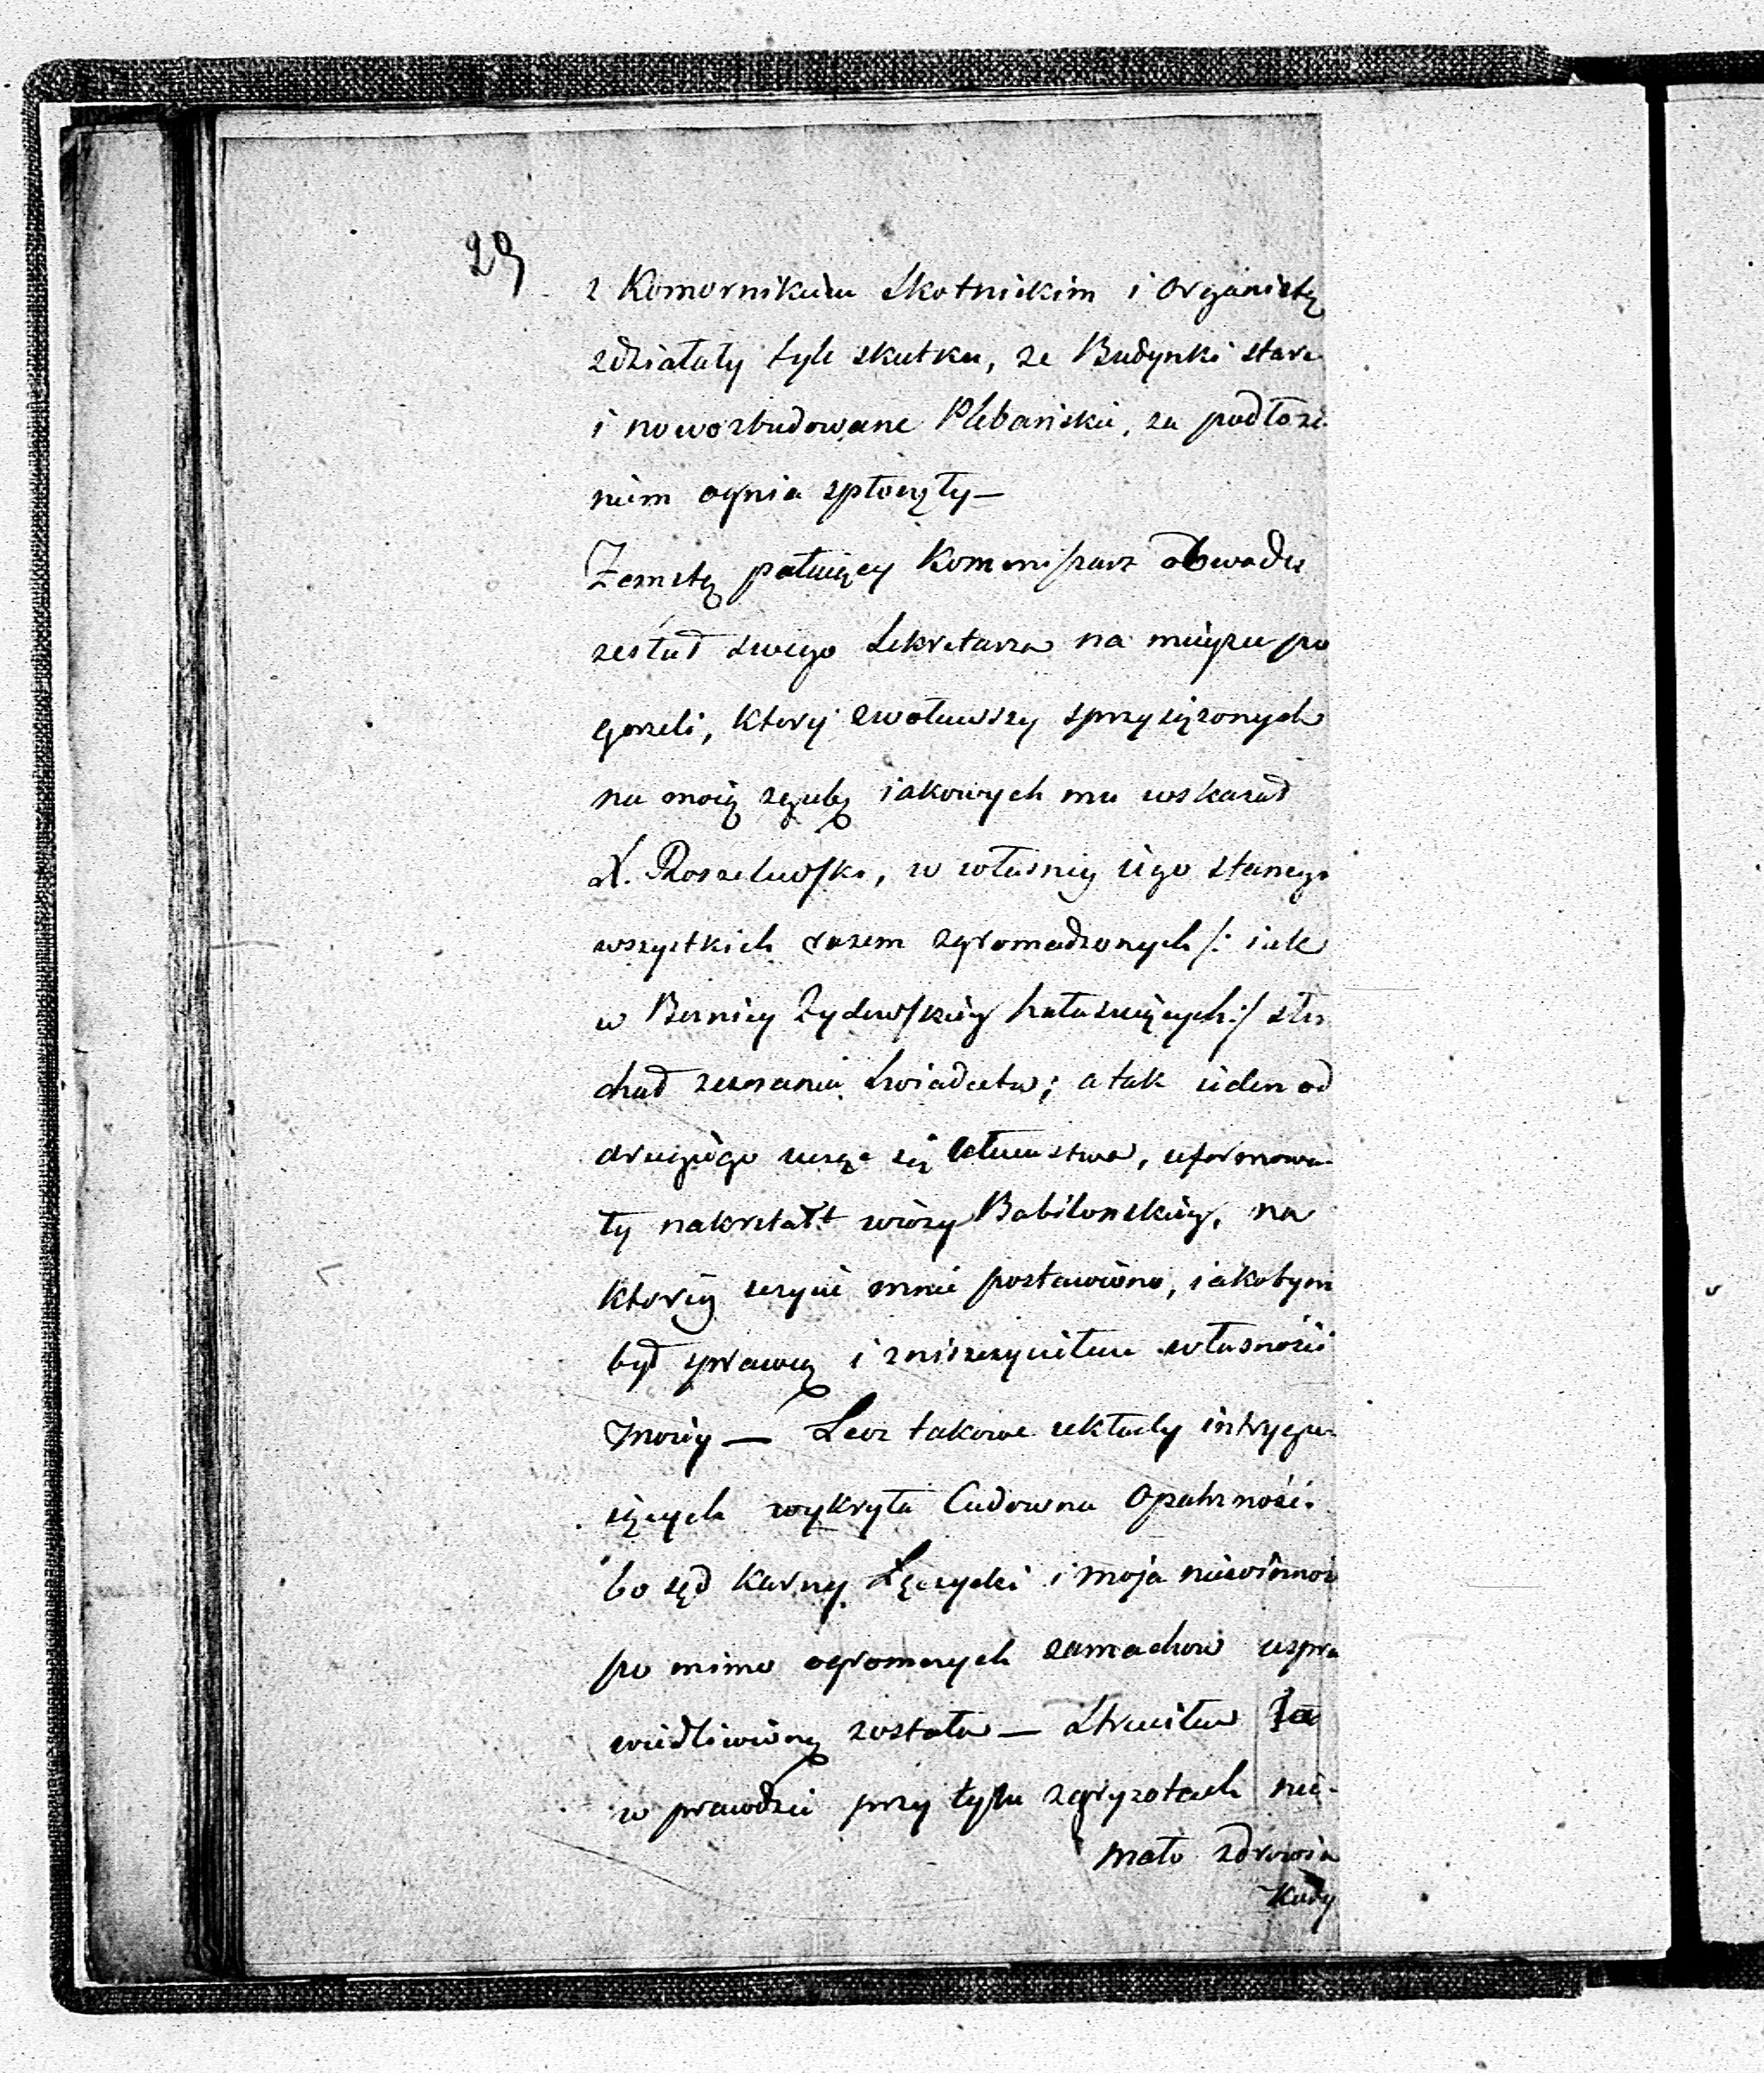 29
z Komornikiem Skotnickim i organistą
zdziałały tyle skutku, że Budynki stare
i nowozbudowane Plebańskie, za podłoże-
niem ognia spłonęły —
Zemstą pałaiący Kommissarz obwodu
zesłał swego Sekretarza na mieysce po
gorzeli, który zwoławszy sprzysiężonych
na moią zgubę iakowych mu wskazał
X. Roszelewski, w własney iego stancyi
wszystkich razem zgromadzonych /: iak
w Boznicy Zydowskiey hałasuiących :/ słu
chał zeznania Swiadectw; a tak ieden od
drugiego ucząc się kłamstwa, uformowa-
ły nakształt wieży Babilonskiey, na
ktorey szczycie mnie postawiono, iakobym
był sprawcą i zniszczycielem własności
moiey — Lecz takowe układy intrygu-
iących wykryła Cudowna Opatrzność.
bo sąd Karny Łęczycki i moja niewinność
po mimo ogromnych zamachow uspra
wiedliwioną została — Straciłem Ja
w prawdzie przy tylu zgryzotach nie-
mało zdrowia
Kiedy